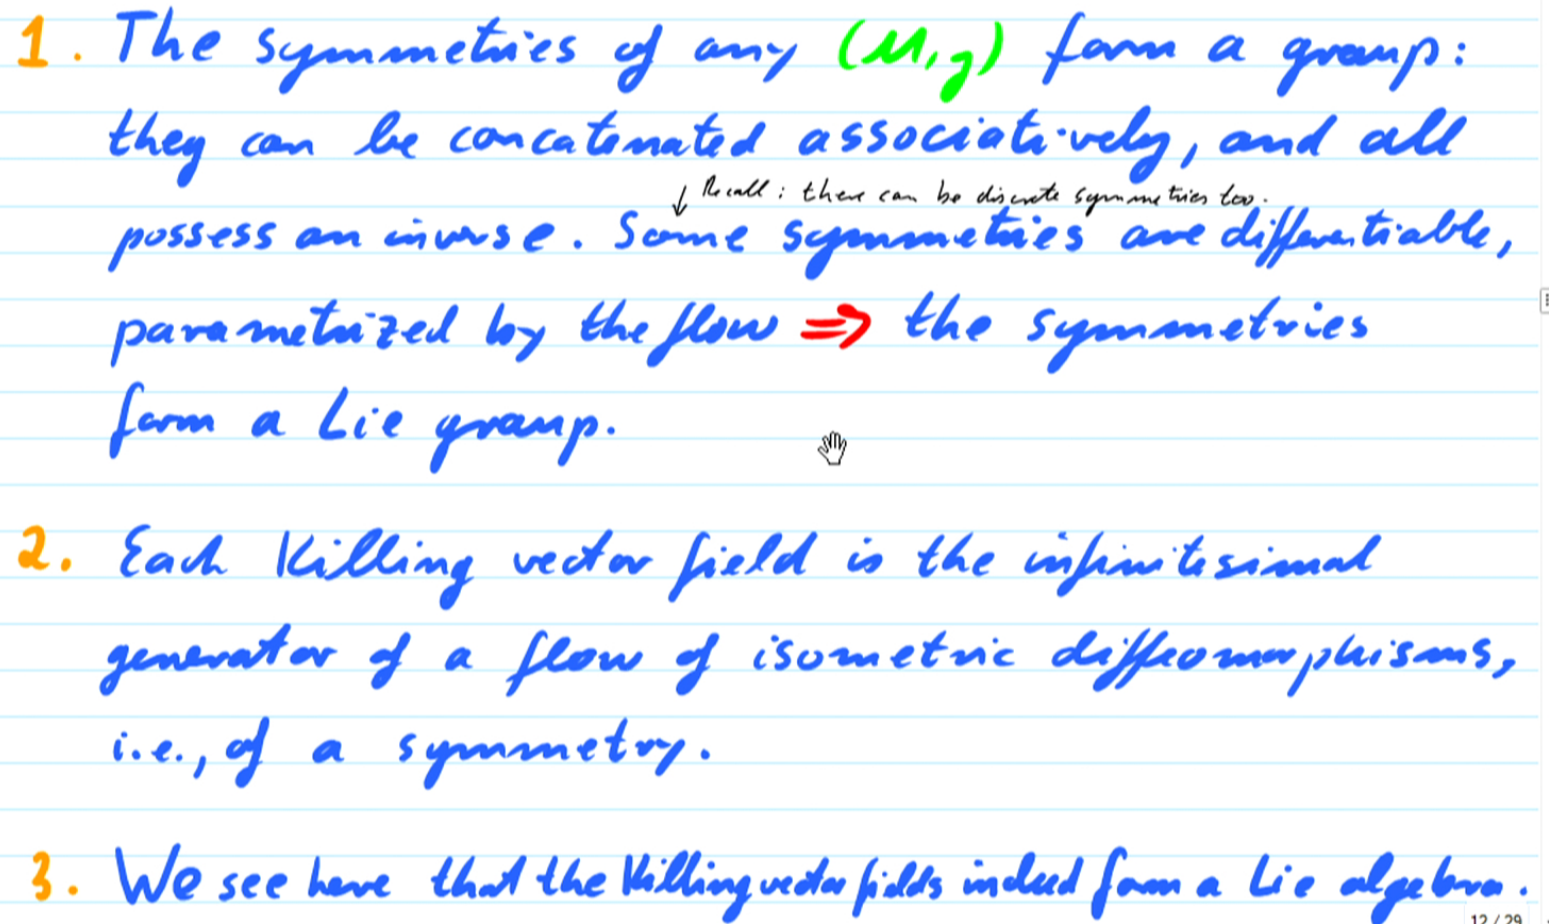 1. The symmetries of any (M,g) form a group:
they can be concatenated associatively, and all
↓ Recall: there can be discrete symmetries too.
possess an inverse. Some symmetries are differentiable,
parametrized by the flow ⇒ the symmetries
form a Lie group.
2. Each Killing vector field is the infinitesimal
generator of a flow of isometric diffeomorphisms,
i.e., of a symmetry.
3. We see here that the Killing vector fields indeed form a Lie algebra.
12 / 29